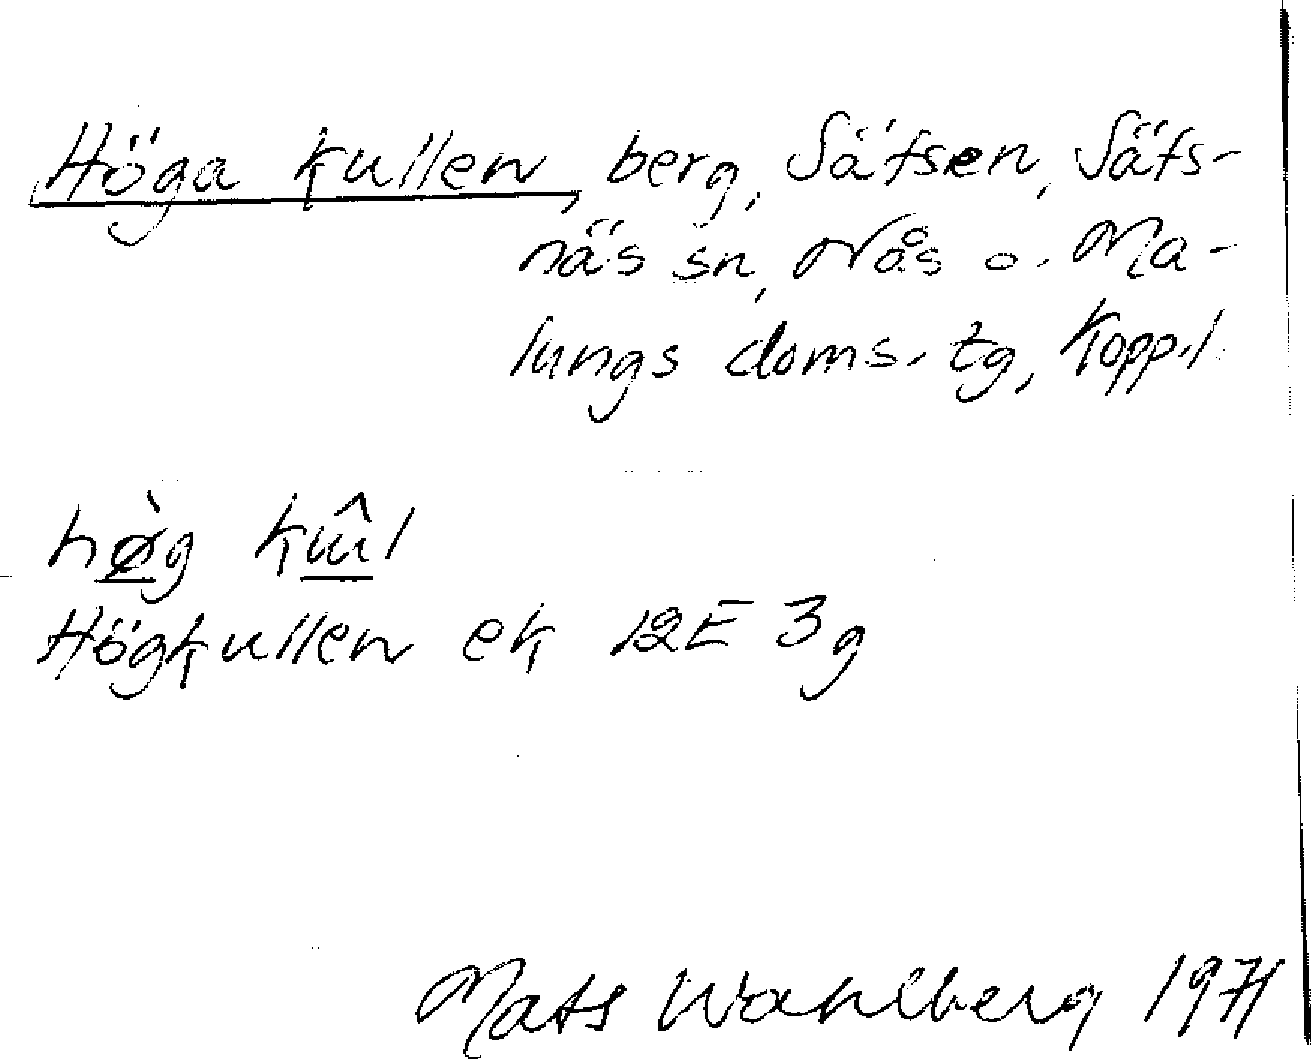 Höga kullen, berg, Säfsen, Säfs-
näs sn, Nås o. Ma-
lungs doms. tg, Kopp.l.
hø̀g kɯ̂l
Högkullen ek 12E 3g
Mats Wahlberg 1971